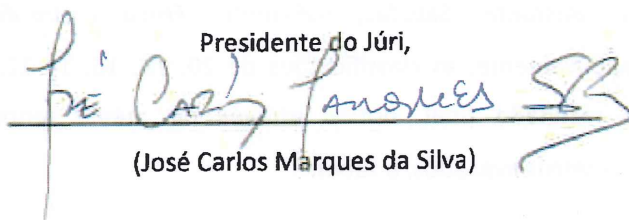 Presidente do Júri,
José Carlos Marques
(José Carlos Marques da Silva)